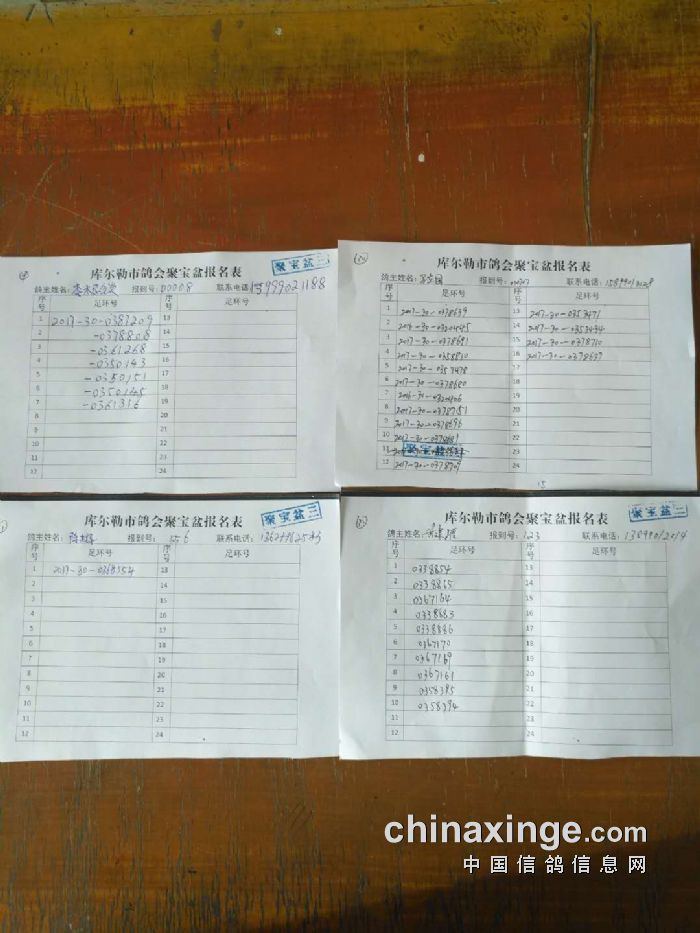 聚宝盆三
库尔勒市鸽会聚宝盆报名表
鸽主姓名: 报到号:00008 联系电话:13999021188
序号 足环号 序号 足环号
1 2017-30-0383209 13
2 -0378808 14
3 -0361268 15
4 -0350143 16
5 -0350151 17
6 -0350145 18
7 -0361316 19
8 20
9 21
10 22
11 23
12 24
聚宝盆三
库尔勒市鸽会聚宝盆报名表
鸽主姓名: 报到号: 联系电话:
序号 足环号 序号 足环号
1 2017-30-0378639 13 2017-30-0353471
2 14 2017-30-0353434
3 2017-30-0378681 15 2017-30-0378710
4 2017-30-0358810 16 2017-30-0378637
5 2017-30-0353478 17
6 2017-30-0378680 18
7 19
8 2017-30-0378751 20
9 2017-30-0378696 21
10 22
11 聚宝盆三 23
12 2017-30-0378709 24
15
聚宝盆三
库尔勒市鸽会聚宝盆报名表
鸽主姓名: 报到号: 联系电话:
序号 足环号 序号 足环号
1 2017-30-0368154 13
2 14
3 15
4 16
5 17
6 18
7 19
8 20
9 21
10 22
11 23
12 24
聚宝盆三
库尔勒市鸽会聚宝盆报名表
鸽主姓名: 报到号:123 联系电话:13099012014
序号 足环号 序号 足环号
1 0338854 13
2 0338865 14
3 0367164 15
4 0338683 16
5 0338886 17
6 0367170 18
7 0367169 19
8 0367161 20
9 0358385 21
10 0358394 22
11 23
12 24
chinaxinge.com
中国信鸽信息网